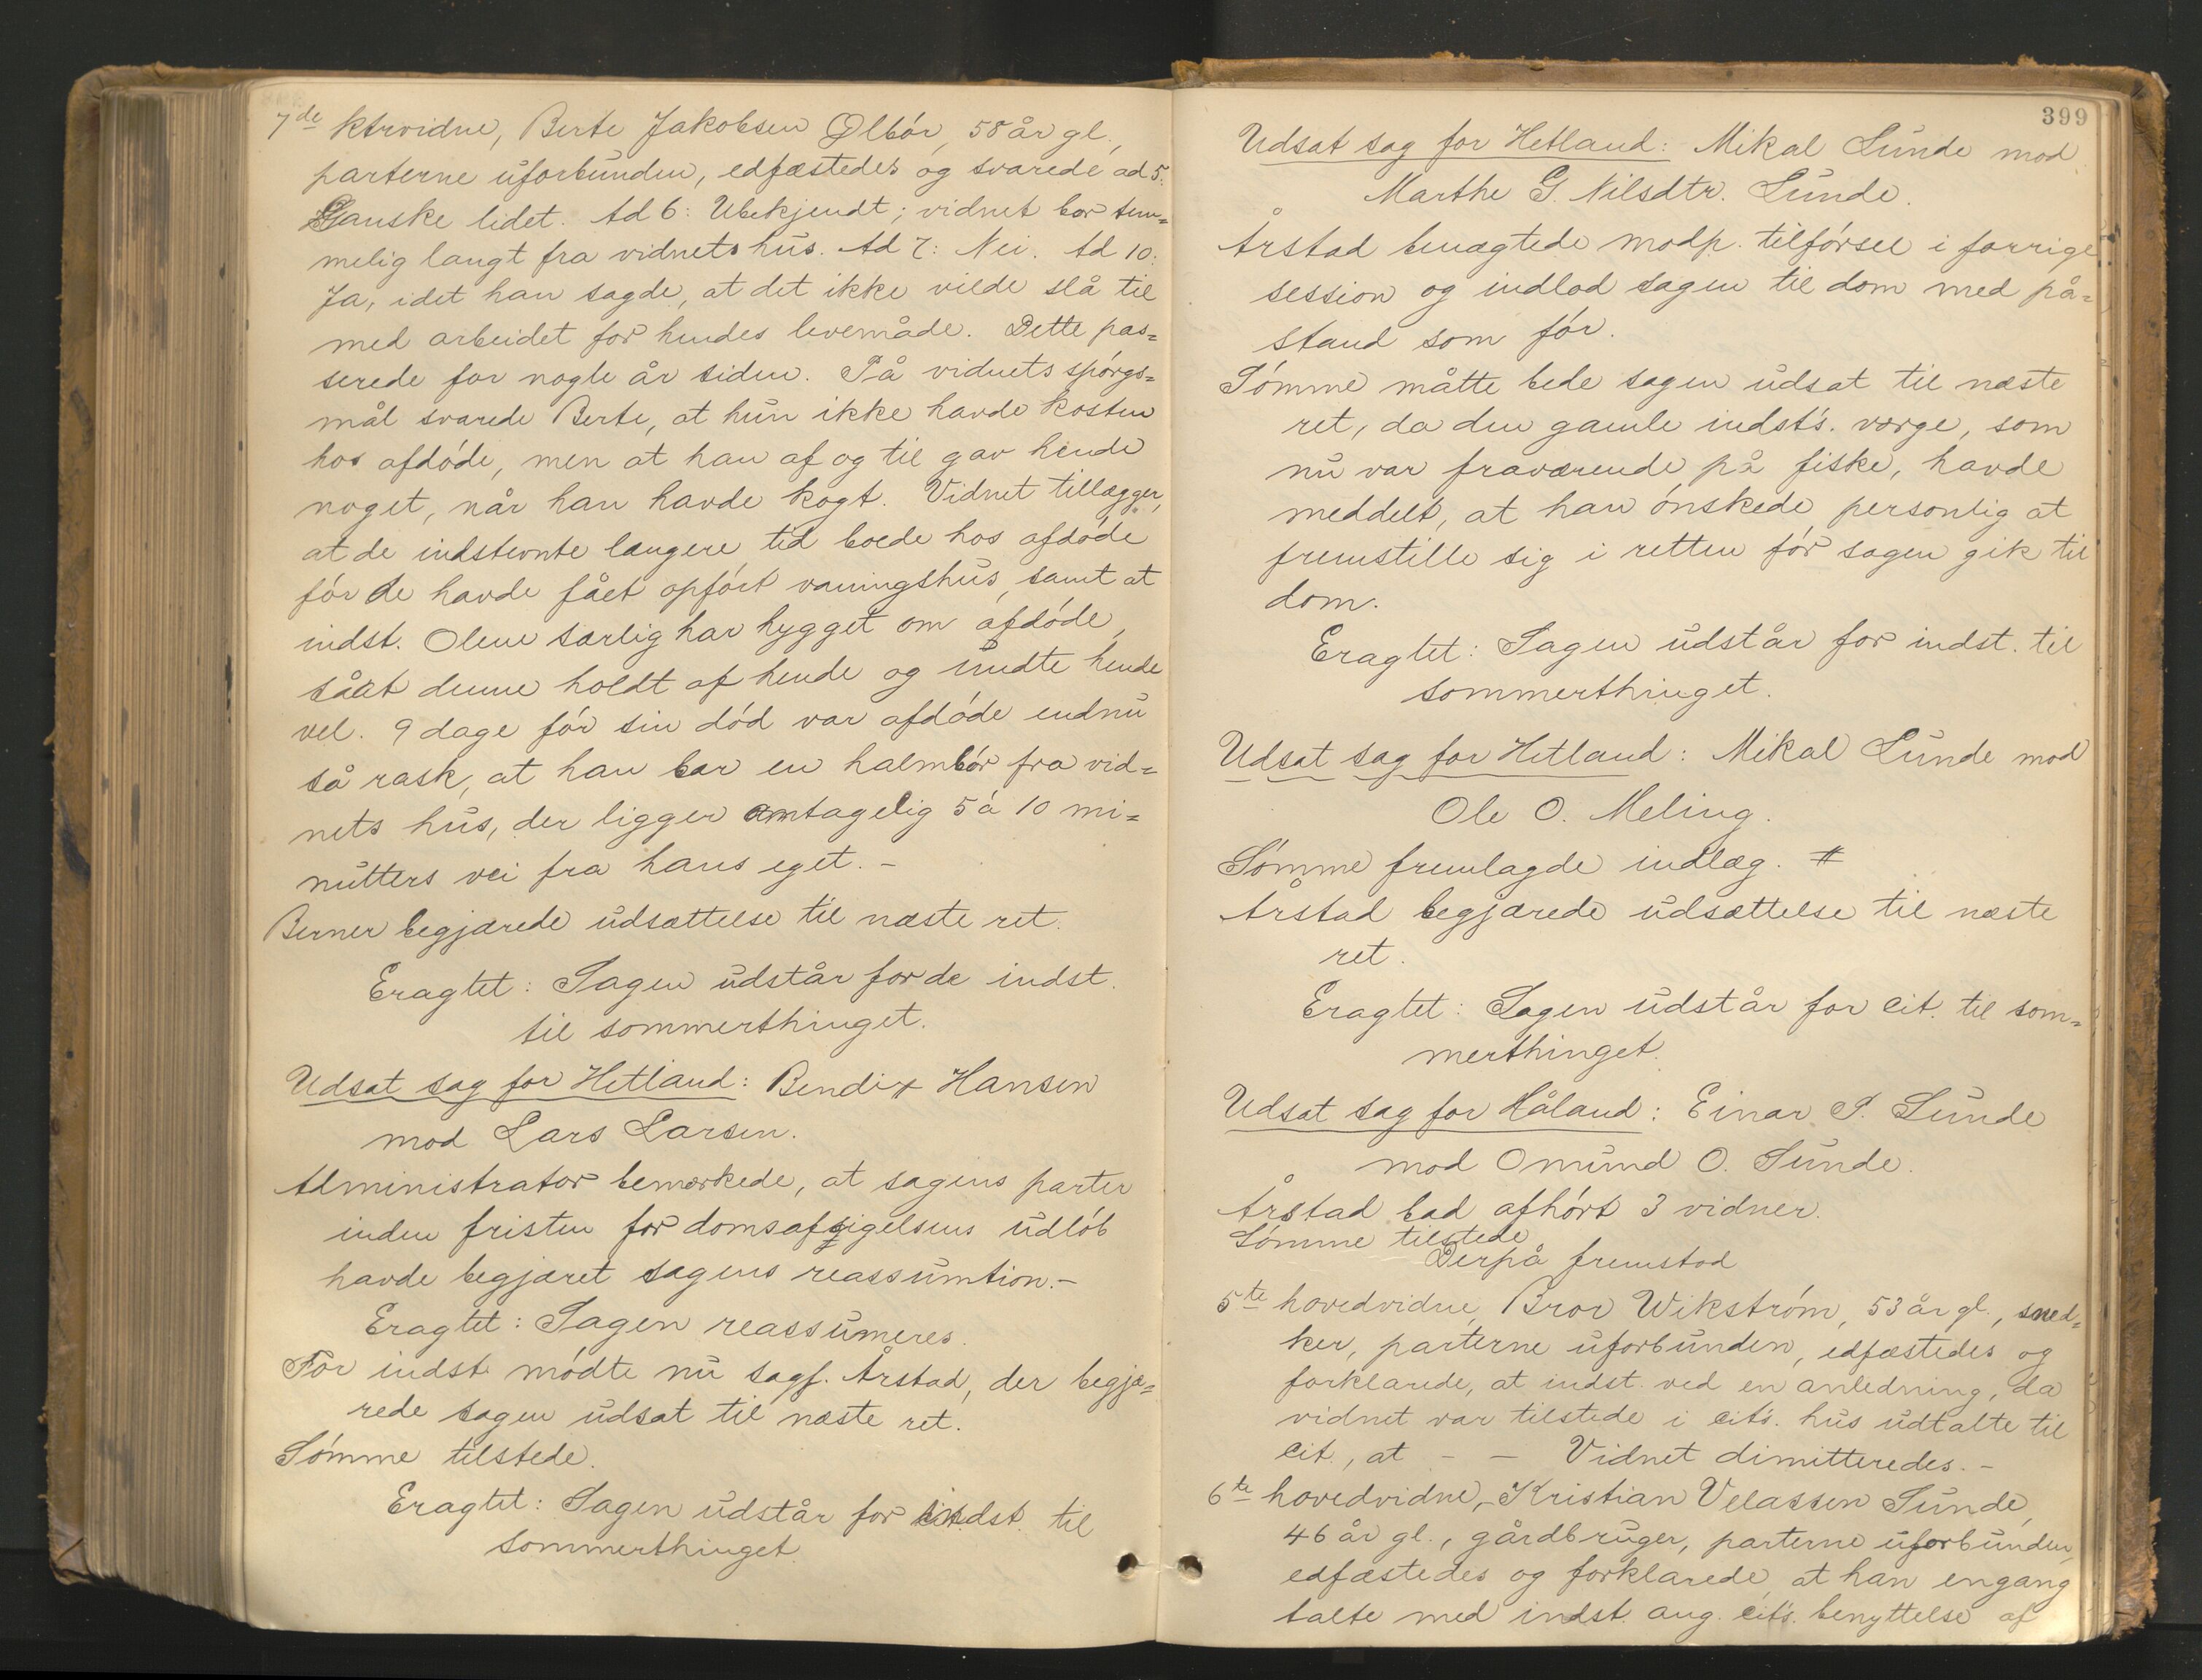 7de ktrvidne, Berte Jakobsen Ølbór, 58 år gl.,
parterne uforbunden, edfæstedes og svarede ad 5:
Ganske lidet. Ad 6: Ubekjendt; vidnet bor tem=
melig langt fra vidnets hus. Ad 7: Nei. Ad 10:
Ja, idet han sagde, at det ikke vilde slå til
med arbeidet for hendes levemåde. Dette pas=
serede for nogle år siden. På vidnets spórgs=
mål svarede Berte, at hun ikke havde kosten
hos afdóde, men at han af og til gav hende
noget, når han havde kogt. Vidnet tillægger,
at de indstevnte længere tid boede hos afdóde
fór de havde fået opfórt vaningshus, samt at
indst. Olene særlig har hygget om afdóde,
såat denne holdt af hende og undte hende
vel. 9 dage fór sin dód var afdóde endnu
så rask, at han bar en halmbór fra vid=
nets hus, der ligger antagelig 5 à 10 mi=
nutters vei fra hans eget. -
Berner begjærede udsættelse til næste ret.
Eragtet: Sagen udstår for de indst.
til sommerthinget.
Udsat sag for Hetland: Bendix Hansen
mod Lars Larsen.
Administrator bemærkede, at sagens parter
inden fristen for domsafsigelsens udlób
havde begjæret sagens reassumtion. -
Eragtet: Sagen reassumeres.
For indst. mödte nu sagf. Årstad, der begjæ=
rede sagen udsat til næste ret.
Sómme tilstede.
Eragtet: Sagen udstår for indst. til
sommerthinget.
399
Udsat sag for Hetland: Mikal Lunde mod
Marthe G. Nilsdtr. Lunde.
Årstad benægtede modp. tilfórsel i forrige
session og indlod sagen til dom med på=
stand som fór.
Sómme måtte bede sagen udsat til næste
ret, da den gamle indst's. værge, som
nu var fraværende på fiske, havde
meddelt, at han ónskede personlig at
fremstille sig i retten fór sagen gik til
dom.
Eragtet: Sagen udstår for indst. til
sommerthinget.
Udsat sag for Hetland: Mikal Lunde mod
Ole O. Meling.
Sómme fremlagde indlæg. #
Årstad begjærede udsættelse til næste
ret.
Eragtet: Sagen udstår for cit. til som=
merthinget.
Udsat sag for Håland: Einar P. Sunde
mod Omund O. Sunde.
Årstad bad afhórt 3 vidner.
Sómme tilstede
Derpå fremstod
5te hovedvidne, Bror Wikstróm, 53 år gl., sned=
ker, parterne uforbunden, edfæstedes og
forklarede, at indst. ved en anledning, da
vidnet var tilstede i cit's. hus udtalte til
cit., at - - Vidnet dimitteredes. -
6te hovedvidne, Kristian Velassen Sunde,
46 år gl., gårdbruger, parterne uforbunden,
edfæstedes og forklarede, at han engang
talte med indst. ang. cit's. benyttelse af